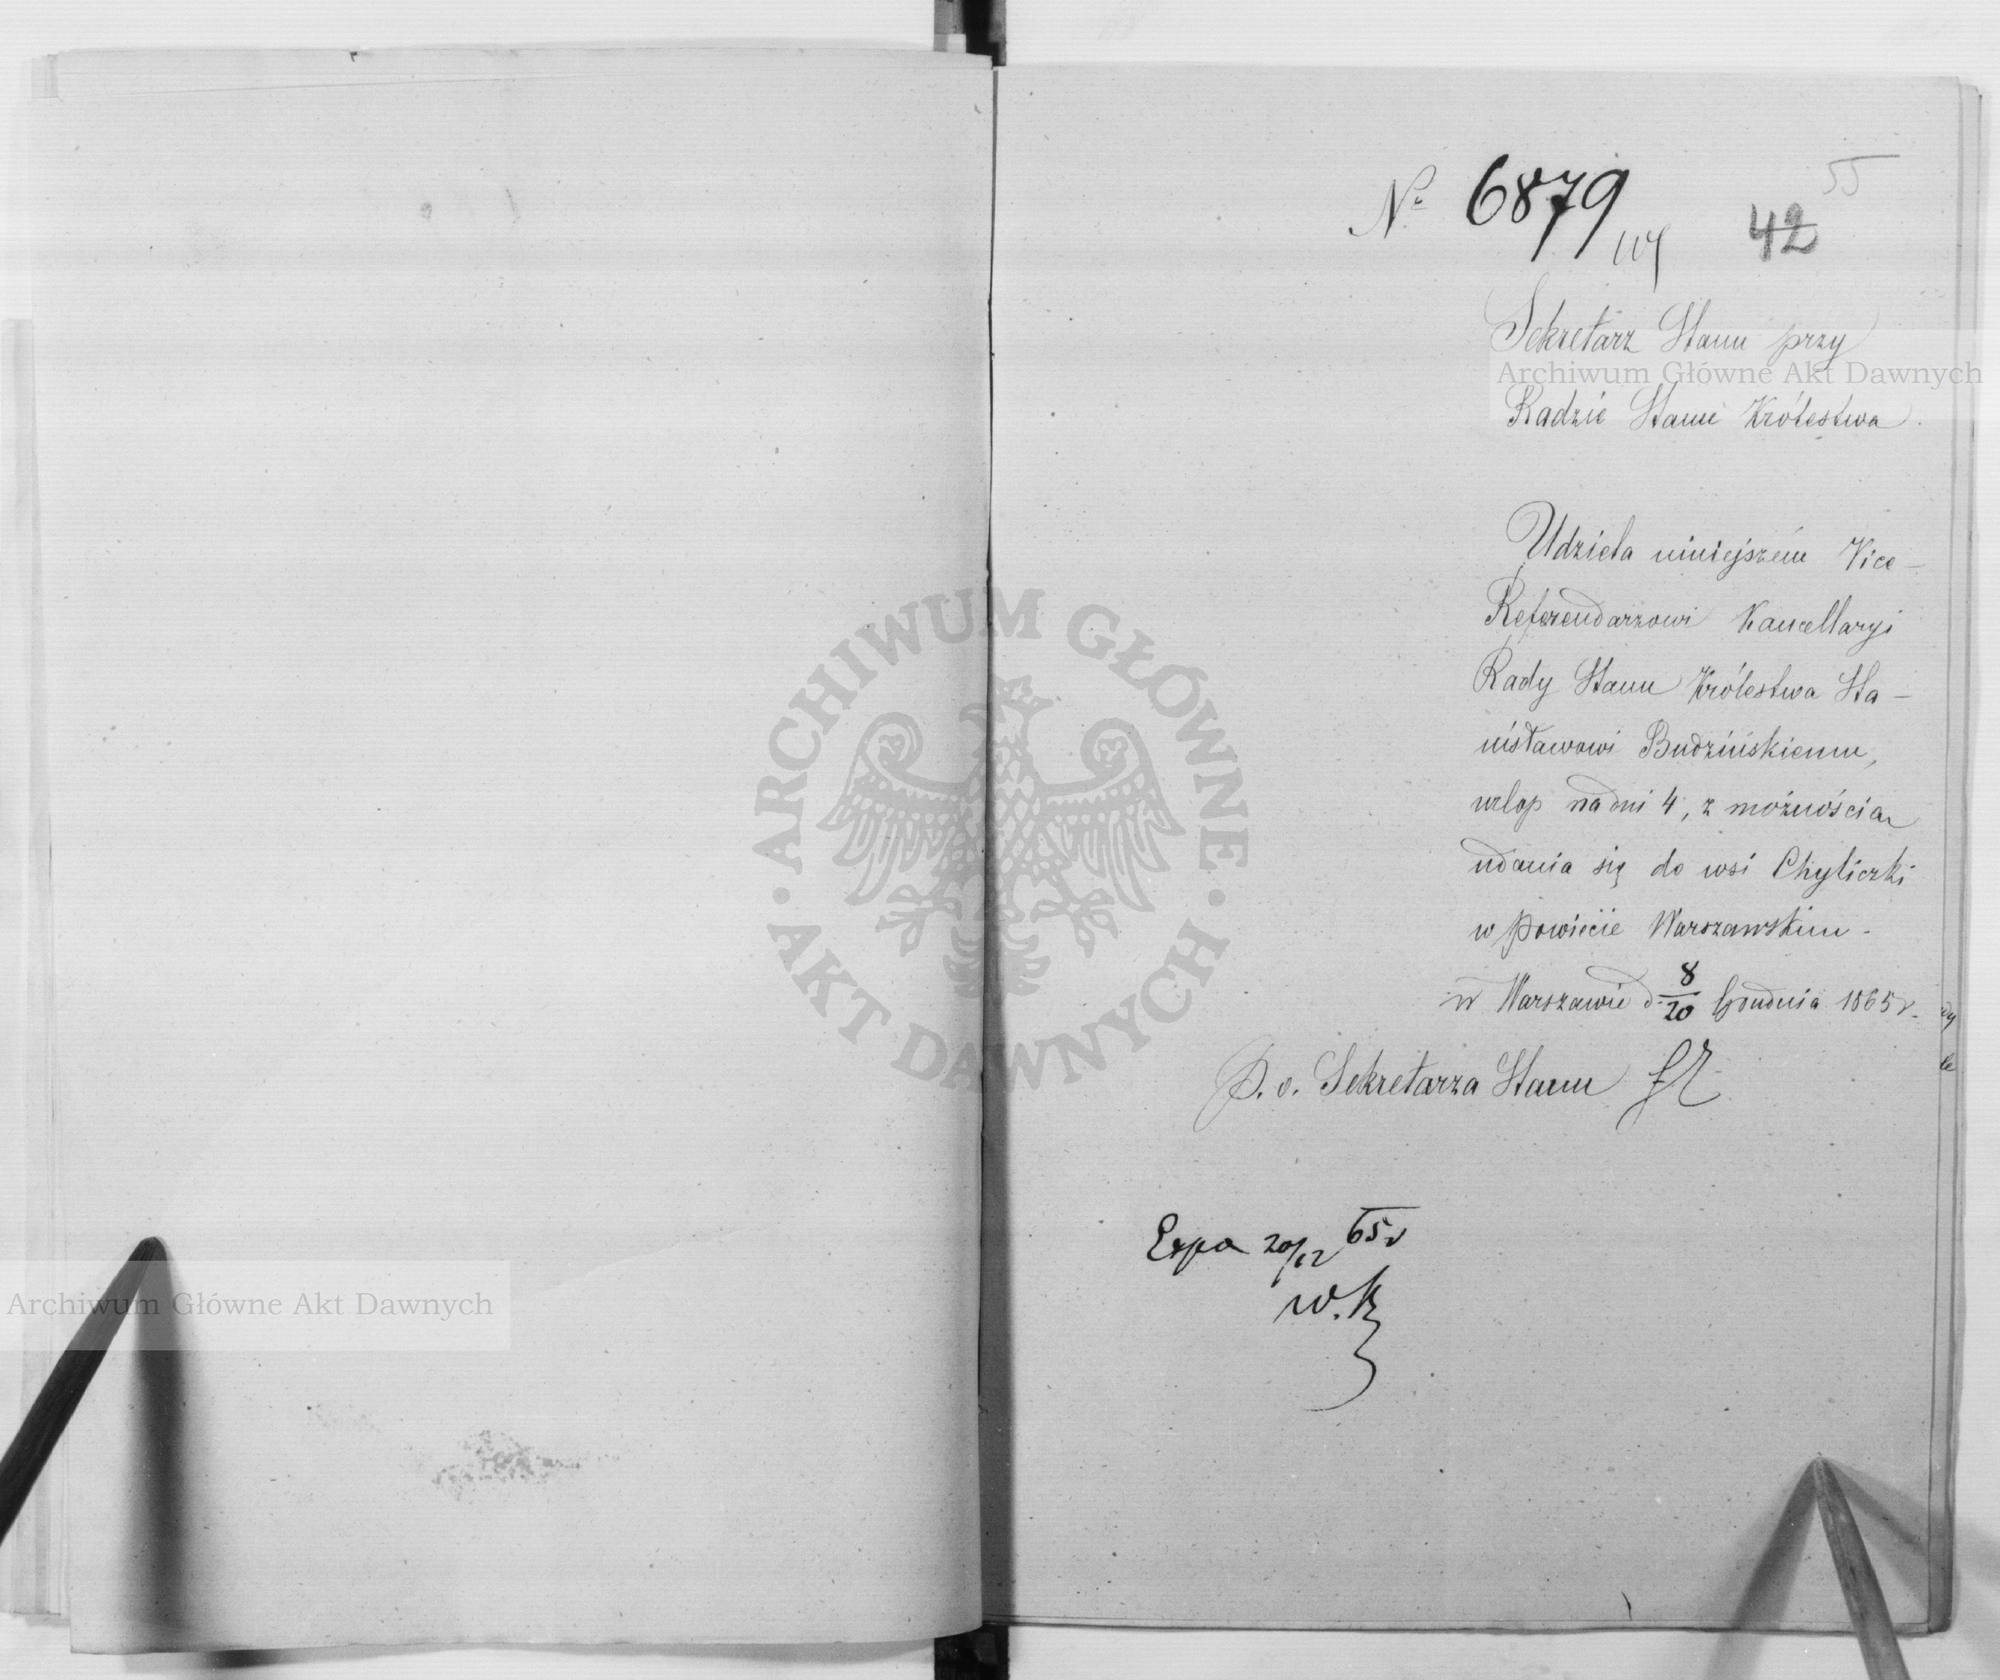 № 6879
55
42
Sekretarz Stanu przy
Archiwum Główne Akt Dawnych
Radzie Stanu Królestwa
Udziela niniejszém Vice-
Referendarzowi Kancellaryi
Rady Stanu Królestwa Sta-
nisławowi Budzińskiemu,
urlop na dni 4, z możnością
udania się do wsi Chyliczki
w Powiecie Warszawskim.
w Warszawie d. 8/20 Grudnia 1865 r.
P. o. Sekretarza Stanu
Expo 20/12 65 r
W. K
ARCHIWUM GŁÓWNE
AKT DAWNYCH
Archiwum Główne Akt Dawnych